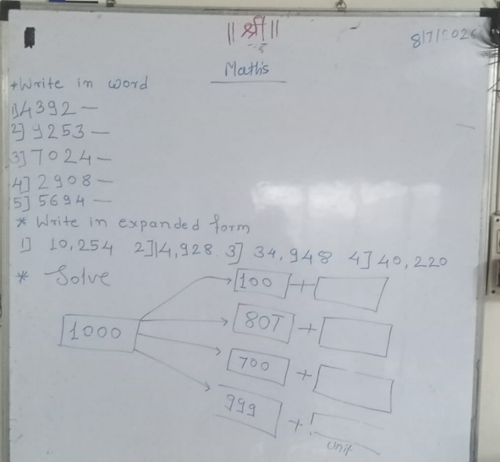 || श्री ||
8/7/2026
Maths
* Write in word
1) 4392 —
2] 9253 —
3] 7024 —
4] 2908 —
5] 5694 —
* Write in expanded form
1] 10,254 2] 14,928. 3] 34,948 4] 40,220
* Solve
1000
100 +
80T +
700 +
999 +
unit